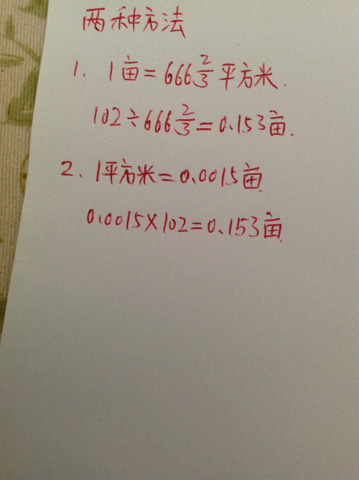 两种方法
1. 1亩=666⅔平方米.
102÷666⅔=0.153亩.
2. 1平方米=0.0015亩
0.0015×102=0.153亩